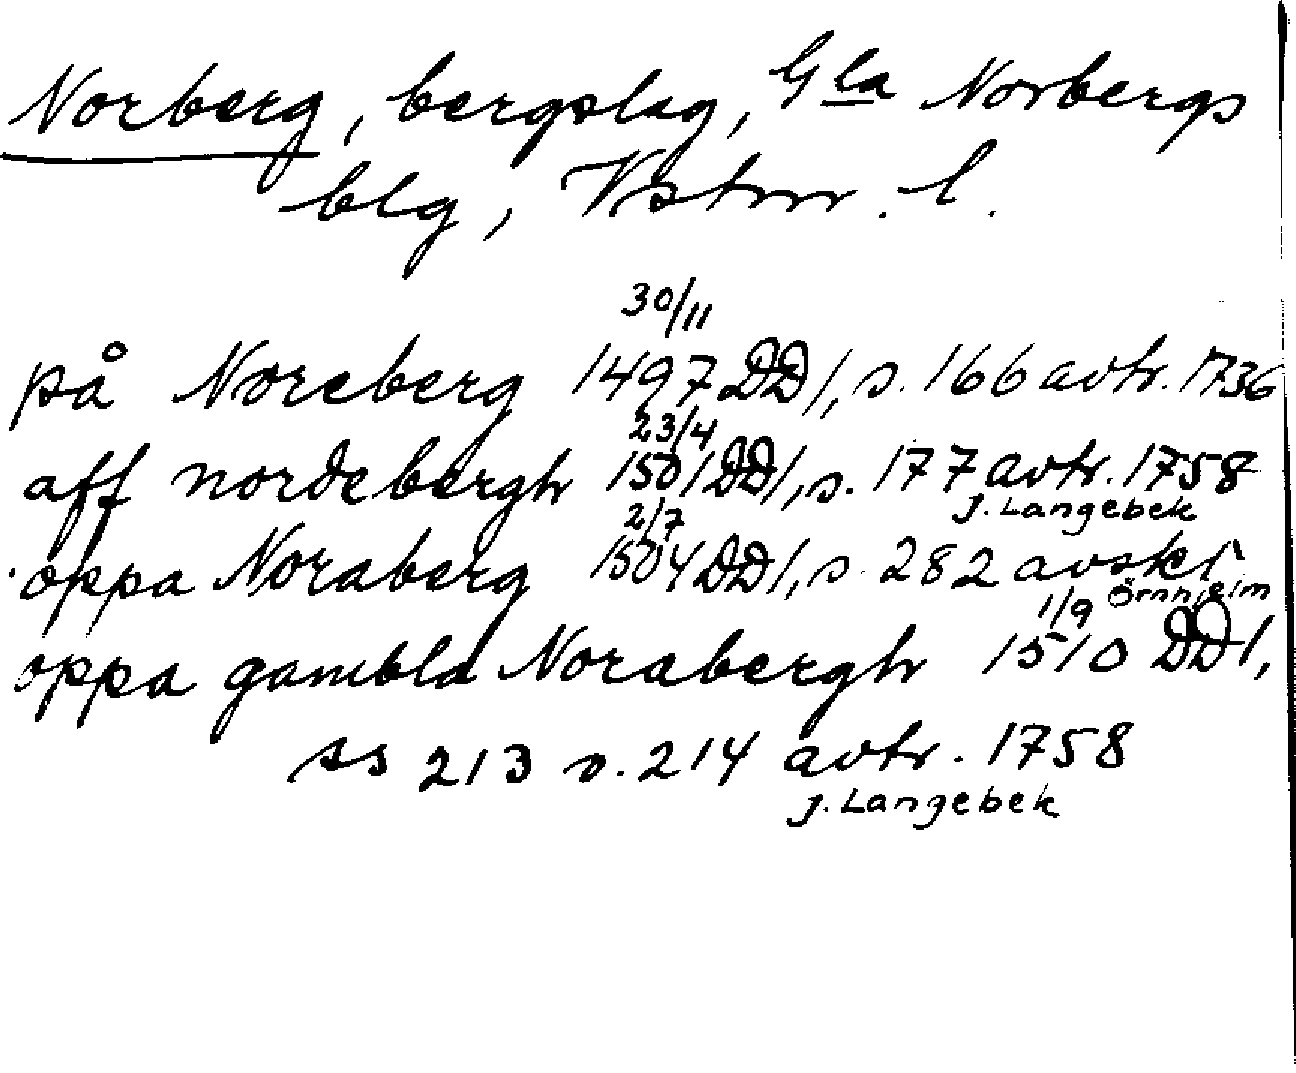 Norberg, bergslag, Gla Norbergs
blg, Vstm. l.
30/11
på Noreberg 1497 DD1, s. 166 avtr. 1736
23/4
aff nordebergh 1501 DD1, s. 177 avtr. 1758
J. Langebek
2/7
oppa Noraberg 1504 DD1, s. 282 avskr
1/9 Örnhjelm
oppa gambla Norabergh 1510 DD1,
ss 213 o. 214 avtr. 1758
J. Langebek